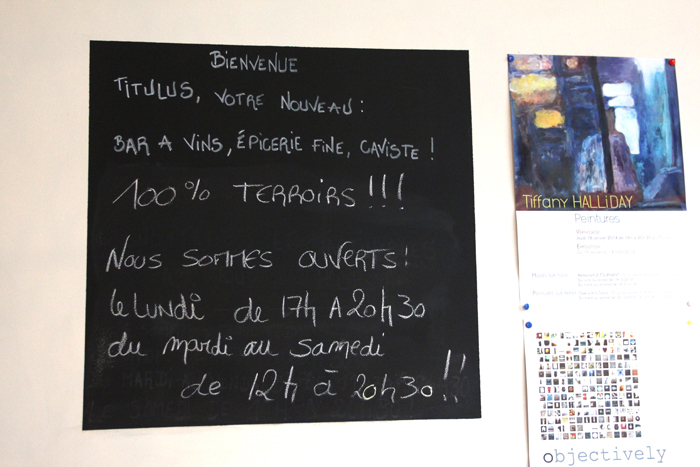 BIENVENUE
TITULUS, VOTRE NOUVEAU :
BAR A VINS, ÉPICERIE FINE, CAVISTE !
100% TERROIRS !!!
NOUS SOMMES OUVERTS !
le LUNDI de 17h A 20h30
du mardi au samedi
de 12h à 20h30 !!
Tiffany HALLiDAY
Peintures
objectively